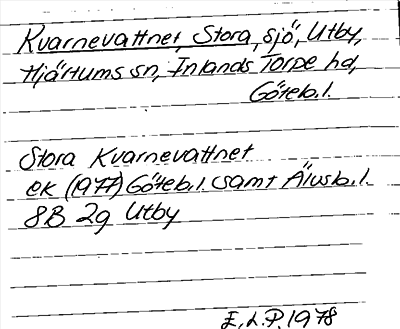 Kvarnevattnet, Stora, sjö, Utby,
Hjärtums sn, Inlands Torpe hd,
Göteb.l.
Stora Kvarnevattnet
ek (1977) Göteb.l. samt Älvsb.l.
8B 2g Utby
E.L.P. 1978